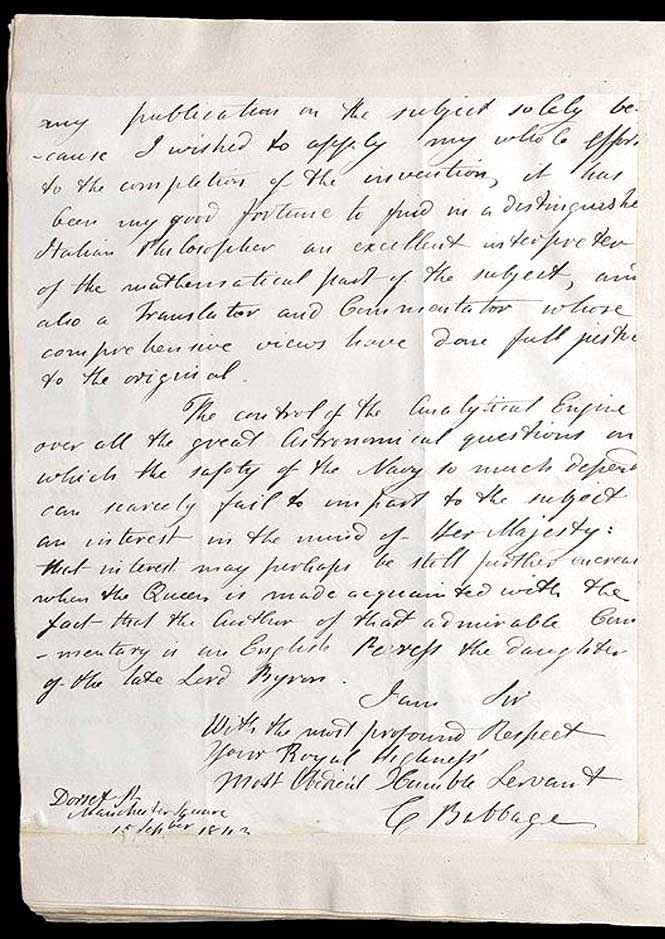 my publication on the subject solely be-
-cause I wished to apply my whole effort
to the completion of the invention, it has
been my good fortune to find in a distinguishe
Italian Philosopher an excellent interpreter
of the mathematical part of the subject, and
also a Translator and Commentator whose
comprehensive views have done full justic
to the original.
The control of the Analytical Engine
over all the great Astronomical questions on
which the safety of the Navy so much depend
can scarcely fail to impart to the subject
an interest in the mind of Her Majesty:
that interest may perhaps be still further increas
when the Queen is made acquainted with the
fact that the Author of that admirable Com
-mentary is an English Peeress the daughter
of the late Lord Byron.
I am Sir
With the most profound Respect
Your Royal Highness'
Most Obedient Humble Servant
C Babbage
Dorset St
Manchester Square
15 Sepber 1843